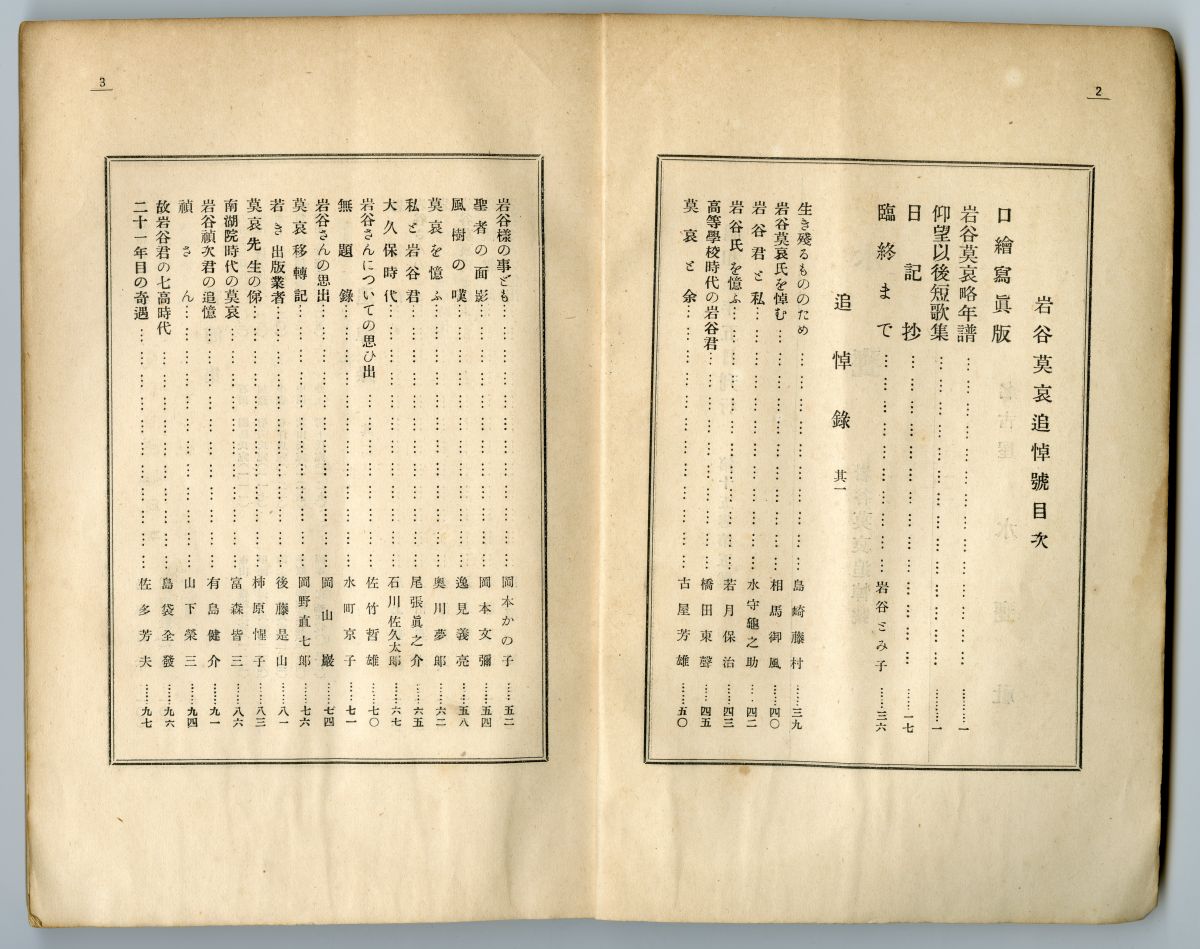 2
岩谷莫哀追悼號目次
口繪寫眞版
岩谷莫哀略年譜………一
仰望以後短歌集………一
日記抄………一七
臨終まで………岩谷とみ子………三六
追悼錄 其一
生き殘るもののため………島崎藤村………三九
岩谷莫哀氏を悼む………相馬御風………四〇
岩谷君と私………水守龜之助………四二
岩谷氏を憶ふ………若月保治………四三
高等學校時代の岩谷君………橋田東聲………四五
莫哀と余………古屋芳雄………五〇
3
岩谷樣の事ども………岡本かの子………五二
聖者の面影………岡本文彌………五四
風樹の嘆………逸見義亮………五八
莫哀を憶ふ………奥川夢郎………六二
私と岩谷君………尾張眞之介………六五
大久保時代………石川佐久太郎………六七
岩谷さんについての思ひ出………佐竹哲雄………七〇
無題錄………水町京子………七一
岩谷さんの思出………岡山巖………七四
莫哀移轉記………岡野直七郎………七六
若き出版業者………後藤是山………八一
莫哀先生の俤………柿原惺子………八三
南湖院時代の莫哀………富森皆三………八六
岩谷禎次君の追憶………有島健介………九一
禎さん………山下榮三………九四
故岩谷君の七高時代………島袋全發………九六
二十一年目の奇遇………佐多芳夫………九七